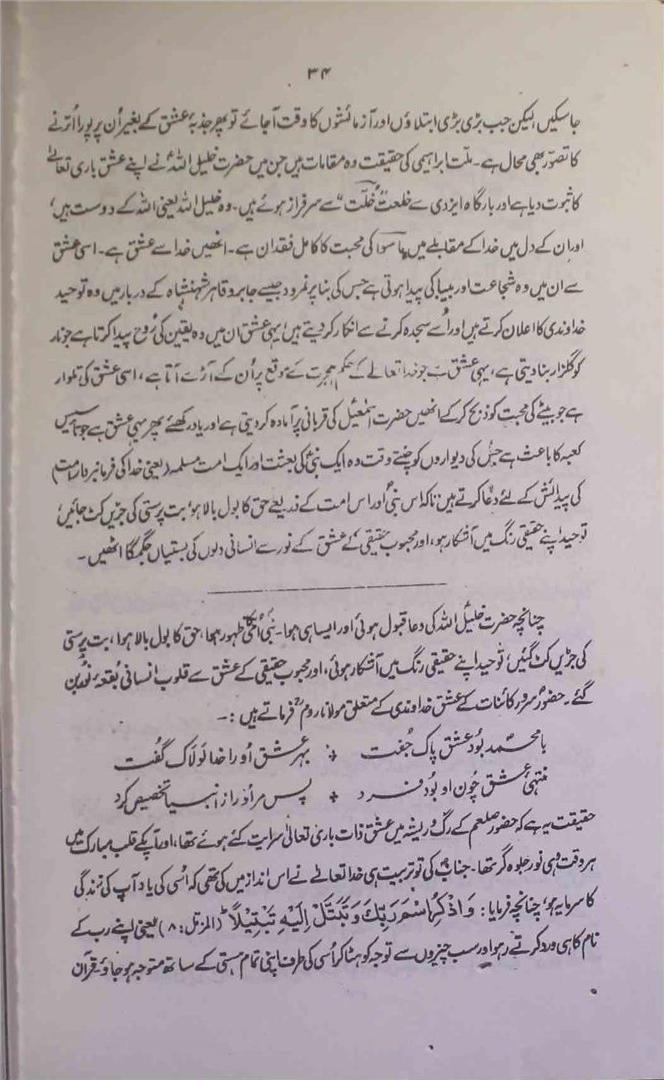 ۳۴
جاسکیں لیکن جب بڑی بڑی ابتلاؤں اور آزمائشوں کا وقت آجائے تو پھر جذبۂ عشق کے بغیر اُن پر پورا اُترنے
کا تصوّر بھی محال ہے۔ ملّت ابراہیمی کی حقیقت وہ مقامات ہیں جن میں حضرت خلیل اللہؑ نے اپنے عشق باری تعالےٰ
کا ثبوت دیا ہے اور بارگاہ ایزدی سے خلعتِ "خُلّت" سے سرفراز ہوئے ہیں۔ وہ خلیل اللہ یعنی اللہ کے دوست ہیں،
اور ان کے دل میں خدا کے مقابلے میں ماسوا کی محبت کا کامل فقدان ہے۔ انھیں خدا سے عشق ہے۔ اسی عشق
سے ان میں وہ شجاعت اور بیباکی پیدا ہوتی ہے جس کی بنا پر نمرود جیسے جابر و قاہر شہنشاہ کے دربار میں وہ توحید
خداوندی کا اعلان کرتے ہیں اور اُسے سجدہ کرنے سے انکار کر دیتے ہیں، یہی عشق ان میں وہ یقین کی رُوح پیدا کرتا ہے جو نار
کو گلزار بنا دیتی ہے، یہی عشق ہے جو خدا تعالےٰ کے حکم ہجرت کے موقع پر اُن کے آڑے آتا ہے، اسی عشق کی تلوار
ہے جو بیٹے کی محبت کو ذبح کر کے انھیں حضرت اسمٰعیلؑ کی قربانی پر آمادہ کر دیتی ہے اور یاد رکھئے پھر یہی عشق ہے جو تاسیس
کعبہ کا باعث ہے جس کی دیواروں کو چنتے وقت وہ ایک نبیؐ کی بعثت اور ایک امت مسلمہ (یعنی خدا کی فرمانبردار امت)
کی پیدائش کے لئے دعا کرتے ہیں تاکہ اس نبیؐ اور اس امت کے ذریعے حق کا بول بالا ہو، بت پرستی کی جڑیں کٹ جائیں،
توحید اپنے حقیقی رنگ میں آشکار ہو، اور محبوب حقیقی کے عشق کے نور سے انسانی دلوں کی بستیاں جگمگا اٹھیں۔
چنانچہ حضرت خلیل اللہ کی دعا قبول ہوئی اور ایسا ہی ہوا۔ نبیؐ اُمّی کا ظہور ہوا، حق کا بول بالا ہوا، بت پرستی
کی جڑیں کٹ گئیں، توحید اپنے حقیقی رنگ میں آشکار ہوئی، اور محبوب حقیقی کے عشق سے قلوب انسانی بقعۂ نور بن
گئے۔ حضورؐ سرور کائنات کے عشق خداوندی کے متعلق مولانا رومؒ فرماتے ہیں :۔
با محمدؐ بود عشق پاک جُفت ٭ بہر عشق اُو را خدا لولاک گفت
منتہیٰ عشق چون او بود فرد ٭ پس مر اُو را ز انبیا تخصیص کرد
حقیقت یہ ہے کہ حضور صلعم کے رگ و ریشہ میں عشق ذات باری تعالیٰ سرایت کئے ہوئے تھا، اور آپؐ کے قلب مبارک میں
ہر وقت وہی نور جلوہ گر تھا۔ جنابؐ کی تو تربیت ہی خدا تعالےٰ نے اس انداز میں کی تھی کہ اُسی کی یاد آپ کی زندگی
کا سرمایہ ہو، چنانچہ فرمایا: وَاذْكُرِ اسْمَ رَبِّكَ وَتَبَتَّلْ اِلَيْهِ تَبْتِيْلًا ؕ (المزمّل: ۸) یعنی اپنے رب کے
نام کا ہی ورد کرتے رہو اور سب چیزوں سے توجہ کو ہٹا کر اُسی کی طرف اپنی تمام ہستی کے ساتھ متوجہ ہو جاؤ۔ قرآن